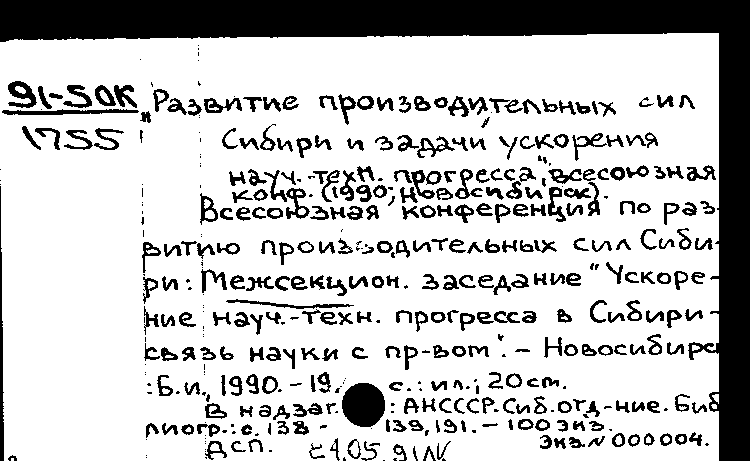 91-50К
1755
"Развитие производительных сил
Сибири и задачи ускорения
науч.-техн. прогресса", всесоюзная
конф. (1990; Новосибирск).
Всесоюзная конференция по раз-
витию производительных сил Сиби-
ри: Межсекцион. заседание "Ускоре-
ние науч.-техн. прогресса в Сибири -
связь науки с пр-вом". - Новосибирс
: Б.и., 1990. - 19. с.: ил.; 20 cm.
В надзаг.: АН СССР. Сиб. отд-ние. Биб
лиогр.: с. 138 - 139, 191. - 100 экз.
ДСП. 24.05.91ЛК Экз. N 000004.